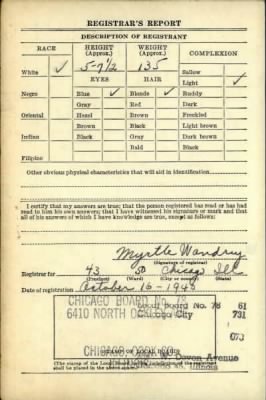 REGISTRAR'S REPORT
DESCRIPTION OF REGISTRANT
RACE HEIGHT (Approx.) WEIGHT (Approx.) COMPLEXION
White ✓ 5-7½ 135 Sallow
EYES HAIR Light ✓
Negro Blue ✓ Blonde ✓ Ruddy
Gray Red Dark
Oriental Hazel Brown Freckled
Brown Black Light brown
Indian Black Gray Dark brown
Bald Black
Filipino
Other obvious physical characteristics that will aid in identification
I certify that my answers are true; that the person registered has read or has had read to him his own answers; that I have witnessed his signature or mark and that all of his answers of which I have knowledge are true, except as follows:
Myrtle
(Signature of registrar)
Registrar for 43 50 Chicago Ill.
(Precinct) (Ward) (City or county) (State)
Date of registration October 16-1940
CHICAGO BOARD
Local Board No. 78 61
6410 NORTH
City 731
073
CHICAGO
Avenue
Illinois
STAMP OF LOCAL BOARD
(The stamp of the Local Board
shall be placed in the above space.)